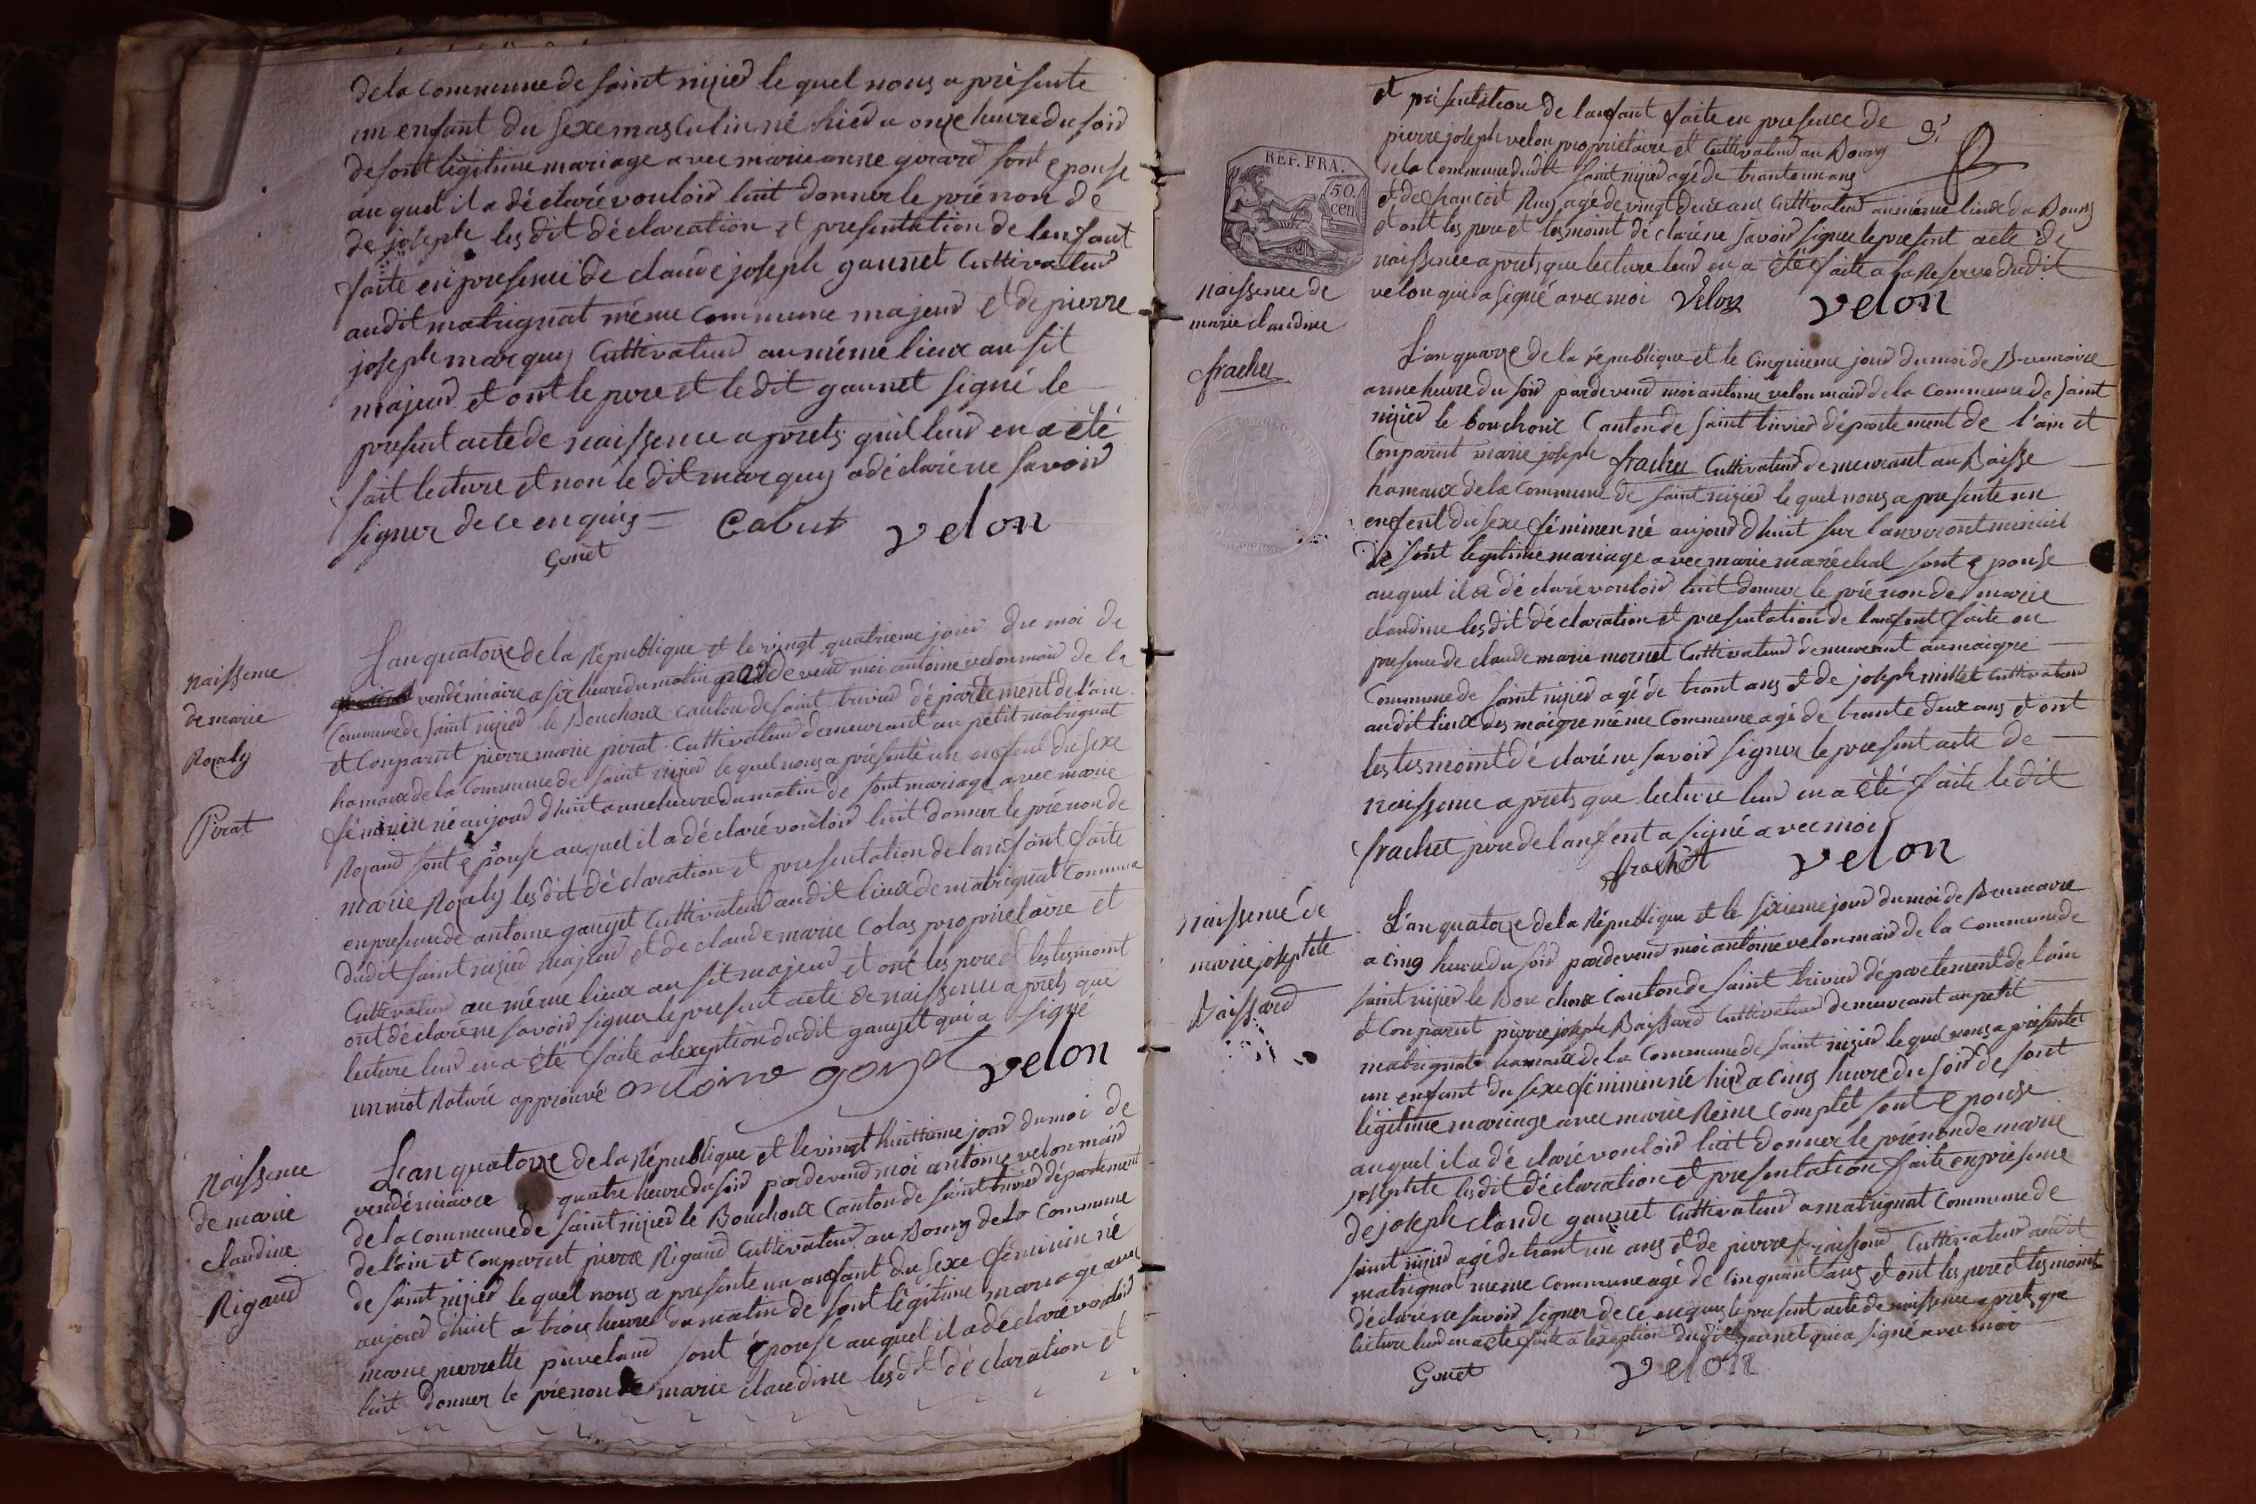 de la commune de saint nizier le quel nous a présenté
un enfant du sexe masculin né hier a onze heure du soir
de sont légitime mariage avec marie anne girard sont epouse
au quel il a déclaré vouloir luit donner le prénon de
de joseph les dit déclaration et presentation de lenfant
faite en presence de claude joseph gaunet Cultivateur
audit matrignat même commune majeur et de pierre
joseph marquis Cultivateur au même lieux au sit
majeur et ont le pere et le dit gaunet signé le
present acte de naissence aprets quil leur en a été
fait lecture et non le dit marquis a déclaré ne savoir
signer de ce enquis = Cabut velon
Gonet
naissence
de marie
Rozaly
Perat
L'an quatorze de la République et le vingt quatrieme jour du moi de
vendémiaire a six heure du matin pardevent moi antoine velon mair de la
Commune de saint nizier le Bouchoux canton de saint trivier département de l'ain
et Comparut pierre marie perat Cultivateur demeurant au petit matrignat
hamaux de la Commune de saint nizier le quel nous a présenté un enfent du sexe
féminin né aujourd'huit a une heure du matin de sont mariage avec marie
Rozand sont epouse au quel il a déclaré vouloir luit donner le prénon de
marie Rozaly les dit déclaration et presentation de lanfant faite
en presence de antoine gauyet Cultivateur audit lieux de matrignat Commune
dudit saint nizier majeur et de claude marie Colas proprietaire et
Cultivateur au même lieux au sit majeur et ont les pere et les tesmoint
ont déclaré ne savoir signer le present acte de naissence aprets que
lecture leur en a été faite a lexeption dudit gauyet qui a signé
un mot Raturé approuvé antoine goyet velon
naissence
de marie
claudine
Rigaud
L'an quatorze de la République et le vingt huittieme jour du moi de
vendémiaire a quatre heure du soir pardevend moi antoine velon mair
de la commune de saint nizier le Bouchoux Canton de saint trivier département
de l'ain et Comparut pierre Rigaud Cultivateur au Bourg de la Commune
de saint nizier le quel nous a presenté un anfant du sexe féminin né
aujourd'huit a trois heure du matin de sont légitime mariage avec
marie pierrette puveland sont épouse au quel il a déclaré vouloir
luit donner le prénon de marie claudine les dit déclaration et
et présentation de lanfant faite en presence de
pierre joseph velon proprietaire et Cultivateur au Bourg
de la Commune dudit saint nizier agé de trante un ans
et de françoit Ruy agé de vingt deux ans Cultivateur au même lieux du Bourg
et ont les pere et tesmoint déclaré ne savoir signer le present acte de
naissence aprets que lecture leur en a été faite a la Reserve dudit
velon qui a signé avec moi Velon velon
REP. FRA.
50
cen
naissence de
marie claudine
frachet
L'an quatorze de la république et le cinquieme jour du moi de Brumaire
a une heure du soir pardevend moi antoine velon mair de la commune de saint
nizier le bouchoux Canton de saint trivier département de l'ain et
Conparut marie joseph frachet Cultivateur demeurant au Baisse
hamaux de la commune de saint nizier le quel nous a presenté un
enfent du sexe féminen né aujourd'huit sur lanviront minuit
de sont légitime mariage avec marie maréchal sont epouse
au quel il a déclaré vouloir luit donner le prénon de marie
claudine les dit déclaration et presentation de lanfent faite en
presence de claude marie mornet Cultivateur demeurant au maigre
Commune de saint nizier agé de trant ans et de joseph millet Cultivateur
audit lieux des maigre même Commune agé de trante deux ans et ont
les tesmoint déclaré ne savoir signer le present acte de
naissence aprets que lecture leur en a été faite le dit
frachet pere de lanfent a signé avec moi
frachet velon
naissence de
marie joseptete
Baissard
L'an quatorze de la République et le sixieme jour du moi de Brumaire
a cinq heure du soir pardevend moi antoine velon mair de la commune de
saint nizier le Bouchoux Canton de saint trivier département de lain
et Conparut pierre joseph Baissard Cultivateur demeurant au petit
matrignat hamaux de la Commune de saint nizier le quel nous a présenté
un enfant du sexe féminin né hier a cinq heure du soir de sont
légitime mariage avec marie Reine Complet sont epouse
au quel il a déclaré vouloir luit donner le prénon de marie
joseptete les dit déclaration et presentation faite en présence
de joseph claude gaunet Cultivateur a matrignat commune de
saint nizier agé de trant un ans et de pierre Cultivateur audit
matrignat meme commune agé de cinquant ans et ont les pere et tesmoint
déclaré ne savoir signer de ce enquis le present acte de naissence aprets que
lecture leur en a ete faite a lexeption dudit gaunet qui a signé avec moi
Gonet velon